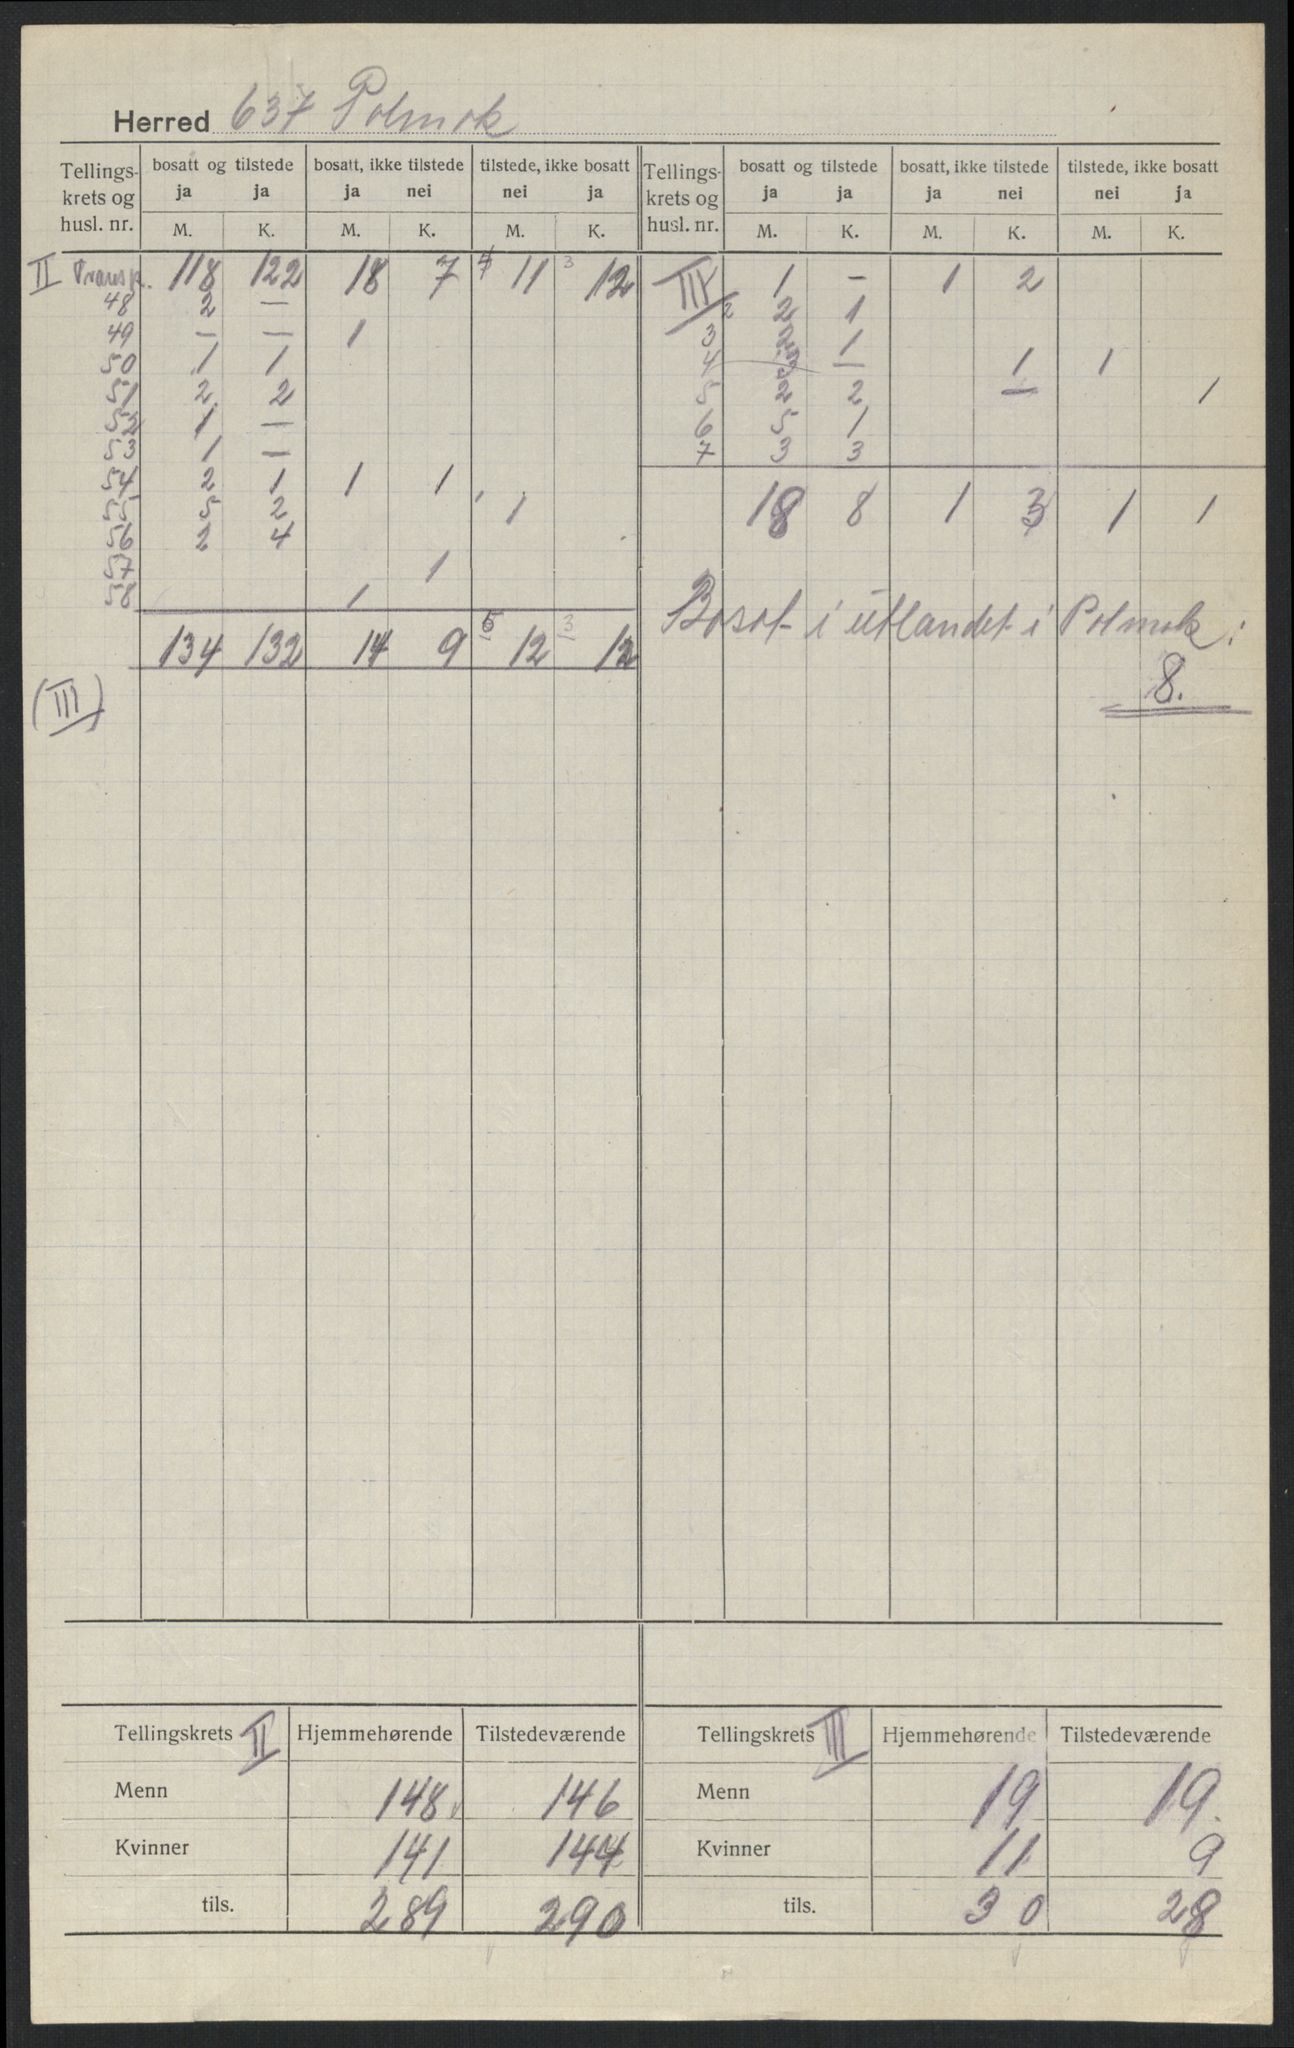 Herred 637 Polmak
Tellings-krets og husl. nr. | bosatt og tilstede ja ja | bosatt, ikke tilstede ja nei | tilstede, ikke bosatt nei ja | Tellings-krets og husl. nr. | bosatt og tilstede ja ja | bosatt, ikke tilstede ja nei | tilstede, ikke bosatt nei ja
M. K. M. K. M. K. M. K. M. K. M. K.
II Transp. 118 122 18 7 4 11 3 12
48 2 —
49 — — 1
50 1 1
51 2 2
52 1 —
53 1 —
54 2 1 1 1
55 5 2 1
56 2 4
57 1
58 1
134 132 14 9 5 12 3 12
(III)
III 1 — 1 2
2 2 1
3 1
4 — 1 1
5 2 2 — 1
6 5 1
7 3 3
18 8 1 3 1 1
Bosat i utlandet i Polmak:
8.
Tellingskrets II Hjemmehørende Tilstedeværende
Menn 148 146
Kvinner 141 144
tils. 289 290
Tellingskrets III Hjemmehørende Tilstedeværende
Menn 19 19.
Kvinner 11 9
tils. 30 28